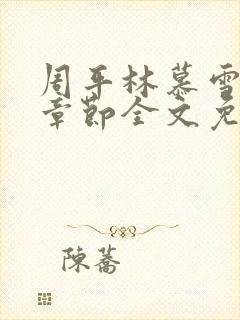 周平林慕雪
章節全文免
陳蕎